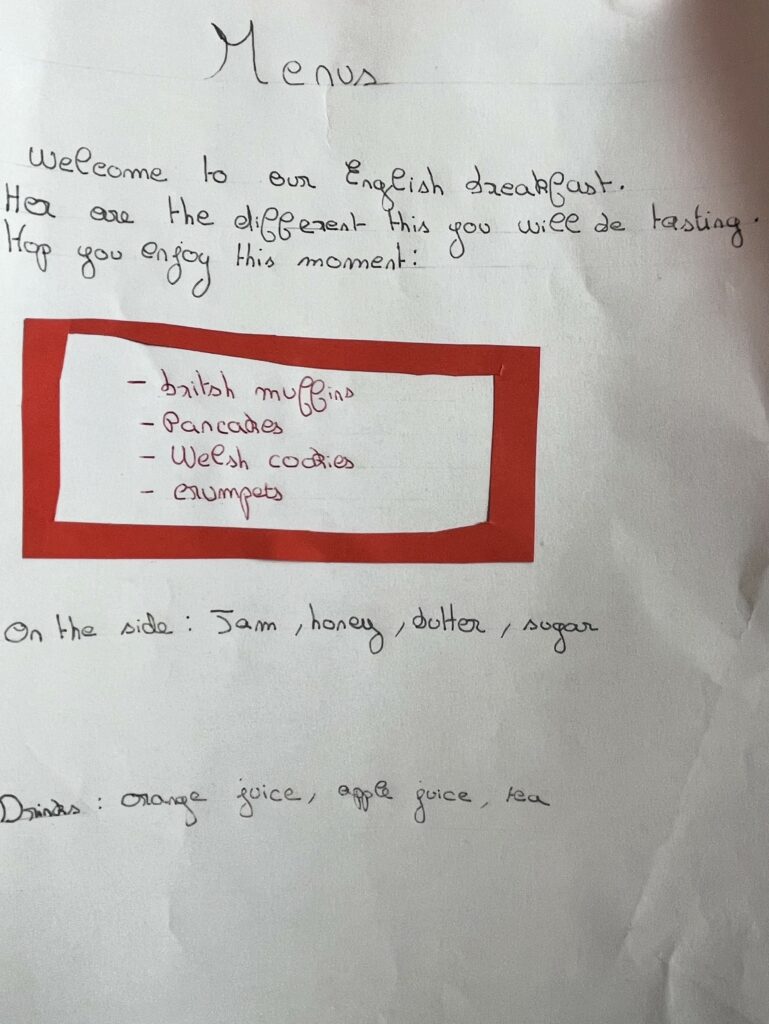 Menus
Welcome to our English breakfast.
Her are the different this you will be tasting.
Hop you enjoy this moment:
- british muffins
- Pancakes
- Welsh cookies
- crumpets
On the side : Jam , honey , butter , sugar
Drinks : orange juice, apple juice, tea